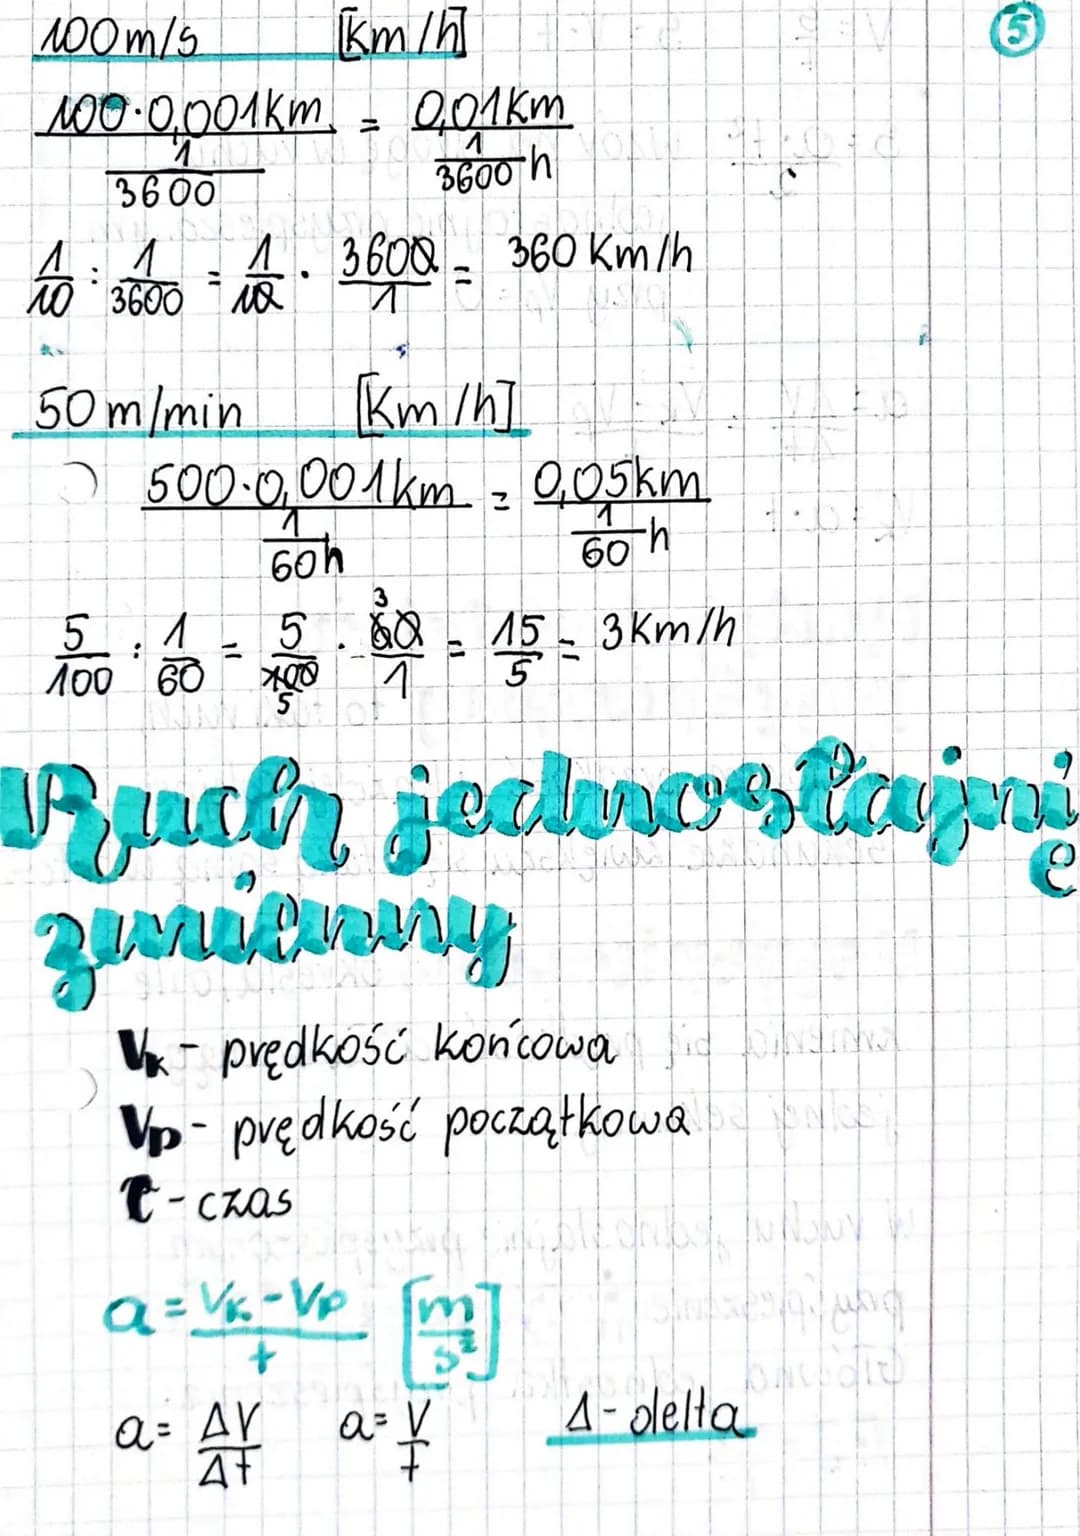 100 m/s [km/h] 5
100·0,001km / 1/3600 = 0,01km / 1/3600 h
1/10 : 1/3600 = 1/10 · 3600/1 = 360 km/h
50 m/min [km/h]
500·0,001km / 1/60 h = 0,05km / 1/60 h
5/100 : 1/60 = 5/100 5 · 3 60/1 = 15/5 = 3 km/h
Ruch jednostajnie
zmienny
Vk - prędkość końcowa
Vp - prędkość początkowa
t - czas
a = Vk - Vp / t [m/s²]
a = ΔV/Δt a = V/t Δ - delta